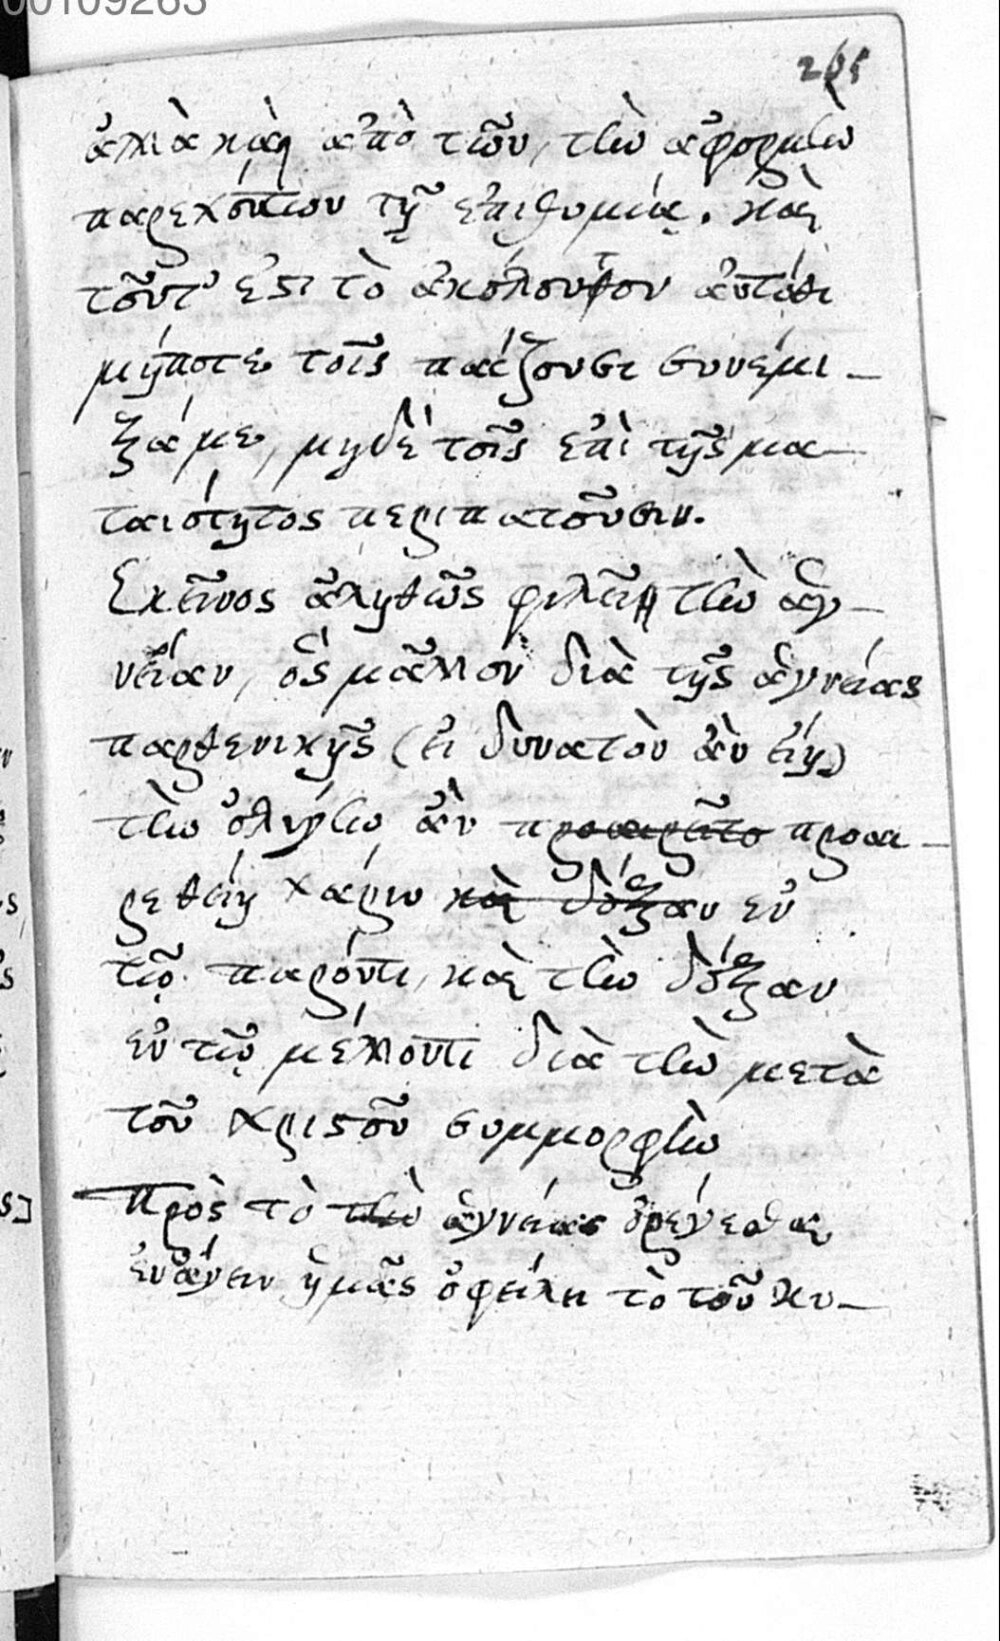 00109263
ἀλλὰ καὶ ἀπὸ τῶν, τὴν ἀφορμὴν
παρεχόντων τῇ ἐπιθυμίᾳ. καὶ
τοῦτ' ἐστι τὸ ἀκόλουθον αὐτόθι
μήποτε τοῖς παίζουσι συνέμι-
ξά με, μηδὲ τοῖς ἐπὶ τῆς μα-
ταιότητος περιπατοῦσιν.
Ἐκεῖνος ἀληθῶς φιλεῖ τὴν ἁγ-
νείαν, ὃς μᾶλλον διὰ τῆς ἁγνείας
παρθενικῆς (εἰ δυνατὸν ἂν εἴη)
τὴν ὀλίγην ἂν προαιρεῖτο προαι-
ρεθείη χάριν καὶ δόξαν ἐν
τῷ παρόντι, καὶ τὴν δόξαν
ἐν τῷ μέλλοντι διὰ τὴν μετὰ
τοῦ χριστοῦ συμμορφὴν
Πρὸς τὸ τὴν ἁγνείας ὀρέγεσθαι
ἐνάγειν ἡμᾶς ὀφείλει τὸ τοῦ κυ-